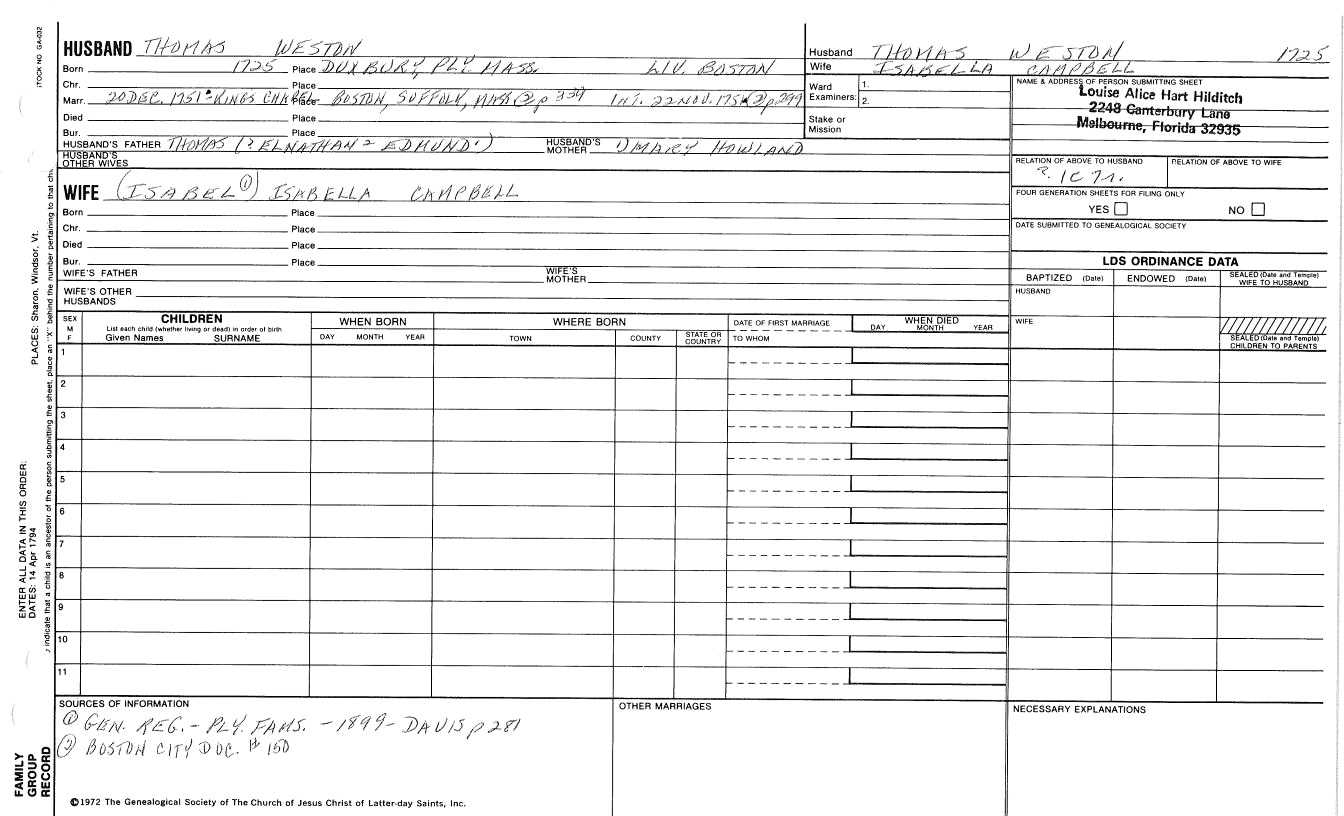 STOCK NO GA-032
HUSBAND THOMAS WESTON
Born 1725 Place DUXBURY, PLY. MASS. LIV. BOSTON
Chr. Place
Marr. 20 DEC. 1751 - KINGS CHAPEL Place BOSTON, SUFFOLK, MASS (2) p 339 INT. 22 NOV. 1751 (2) p 299
Died Place
Bur. Place
HUSBAND'S FATHER THOMAS (? ELNATHAN 2 EDMUND 1) HUSBAND'S MOTHER 1) MARY HOWLAND
HUSBAND'S OTHER WIVES
Husband THOMAS WESTON 1725
Wife ISABELLA CAMPBELL
Ward Examiners: 1. 2.
Stake or Mission
NAME & ADDRESS OF PERSON SUBMITTING SHEET
Louise Alice Hart Hilditch
2248 Canterbury Lane
Melbourne, Florida 32935
RELATION OF ABOVE TO HUSBAND RELATION OF ABOVE TO WIFE
FOUR GENERATION SHEETS FOR FILING ONLY
YES NO
DATE SUBMITTED TO GENEALOGICAL SOCIETY
WIFE (ISABEL (1)) ISABELLA CAMPBELL
Born Place
Chr. Place
Died Place
Bur. Place
WIFE'S FATHER WIFE'S MOTHER
WIFE'S OTHER HUSBANDS
LDS ORDINANCE DATA
BAPTIZED (Date) ENDOWED (Date) SEALED (Date and Temple) WIFE TO HUSBAND
HUSBAND
WIFE
SEALED (Date and Temple) CHILDREN TO PARENTS
SEX M F
CHILDREN
List each child (whether living or dead) in order of birth
Given Names SURNAME
WHEN BORN
DAY MONTH YEAR
WHERE BORN
TOWN COUNTY STATE OR COUNTRY
DATE OF FIRST MARRIAGE
TO WHOM
WHEN DIED
DAY MONTH YEAR
1
2
3
4
5
6
7
8
9
10
11
SOURCES OF INFORMATION
(1) GEN. REG. - PLY. FAMS. - 1899 - DAVIS p 281
(2) BOSTON CITY DOC. # 150
OTHER MARRIAGES
NECESSARY EXPLANATIONS
©1972 The Genealogical Society of The Church of Jesus Christ of Latter-day Saints, Inc.
PLACES: Sharon, Windsor, Vt.
indicate that a child is an ancestor of the person submitting the sheet, place an "X" behind the number pertaining to that
ENTER ALL DATA IN THIS ORDER:
DATES: 14 Apr 1794
FAMILY GROUP RECORD